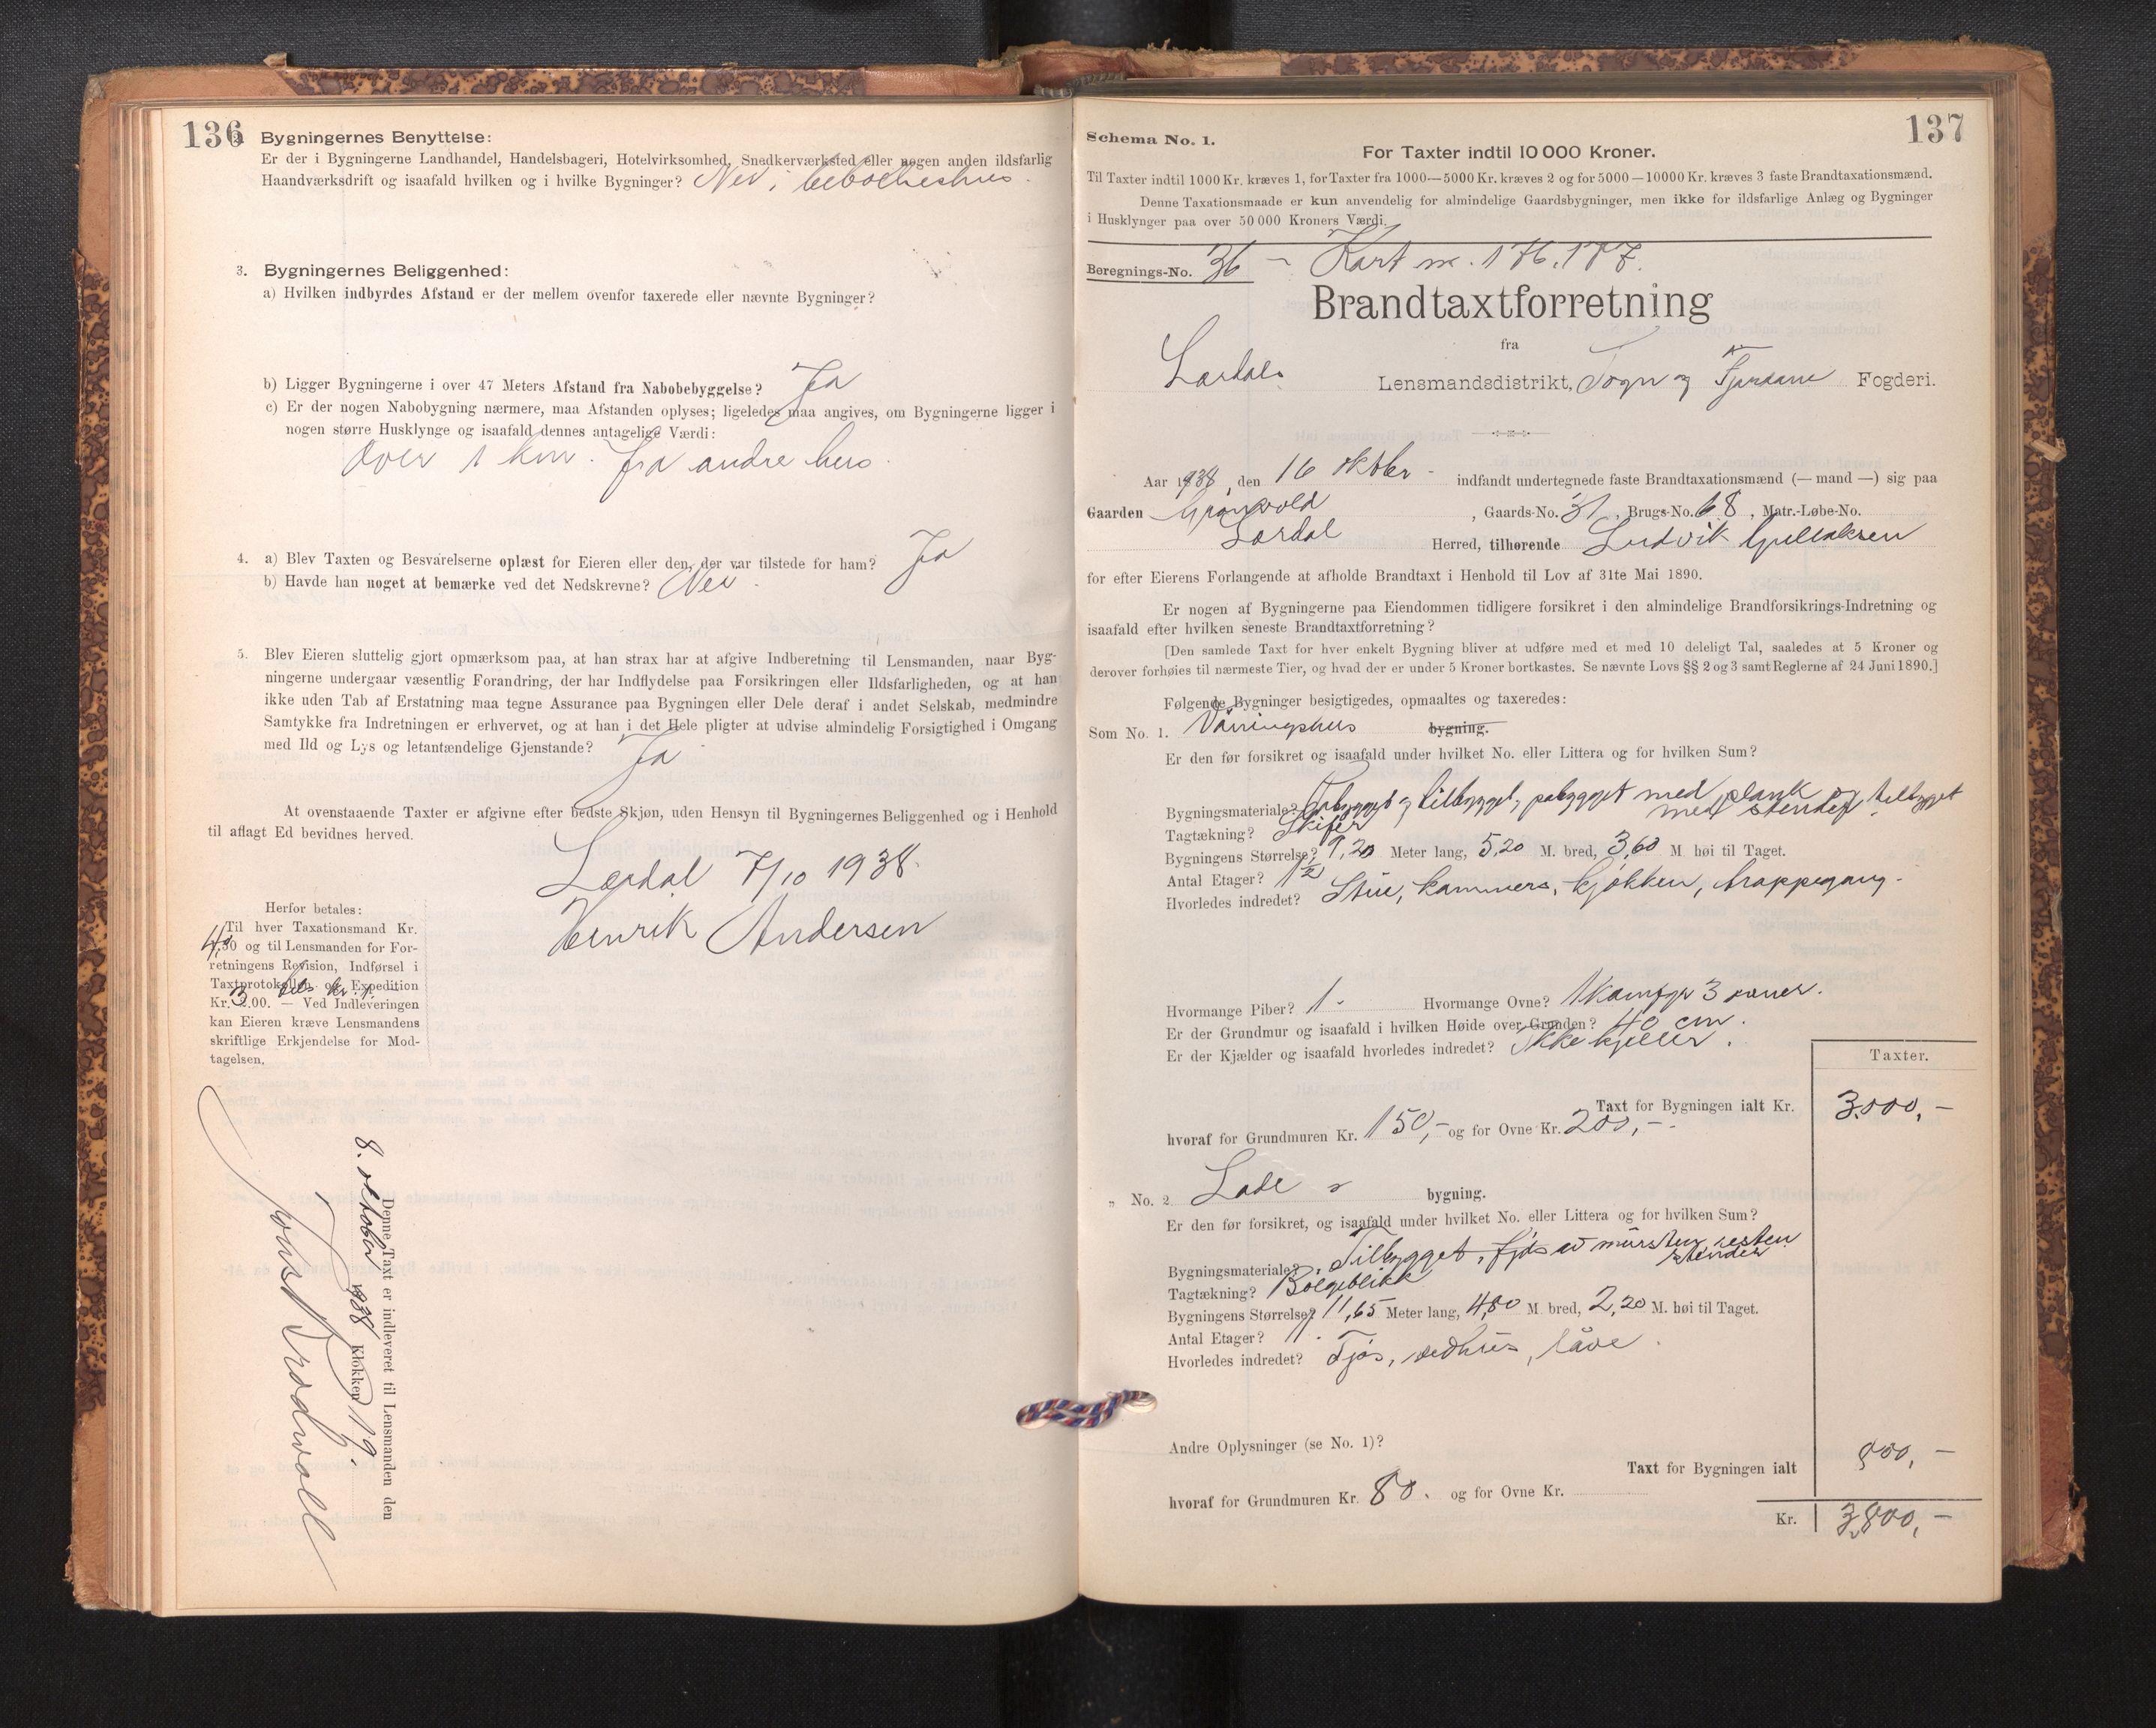 136
2. Bygningernes Benyttelse:
Er der i Bygningerne Landhandel, Handelsbageri, Hotelvirksomhed, Snedkerværksted eller nogen anden ildsfarlig
Haandværksdrift og isaafald hvilken og i hvilke Bygninger? Nei, beboelseshus.
3. Bygningernes Beliggenhed:
a) Hvilken indbyrdes Afstand er der mellem ovenfor taxerede eller nævnte Bygninger?
b) Ligger Bygningerne i over 47 Meters Afstand fra Nabobebyggelse? Ja
c) Er der nogen Nabobygning nærmere, maa Afstanden oplyses; ligeledes maa angives, om Bygningerne ligger i
nogen større Husklynge og isaafald dennes antagelige Værdi:
Over 1 km. fra andre hus.
4. a) Blev Taxten og Besvarelserne oplæst for Eieren eller den, der var tilstede for ham? Ja
b) Havde han noget at bemærke ved det Nedskrevne? Nei.
5. Blev Eieren sluttelig gjort opmærksom paa, at han strax har at afgive Indberetning til Lensmanden, naar Byg-
ningerne undergaar væsentlig Forandring, der har Indflydelse paa Forsikringen eller Ildsfarligheden, og at han
ikke uden Tab af Erstatning maa tegne Assurance paa Bygningen eller Dele deraf i andet Selskab, medmindre
Samtykke fra Indretningen er erhvervet, og at han i det Hele pligter at udvise almindelig Forsigtighed i Omgang
med Ild og Lys og letantændelige Gjenstande? Ja
At ovenstaaende Taxter er afgivne efter bedste Skjøn, uden Hensyn til Bygningernes Beliggenhed og i Henhold
til aflagt Ed bevidnes herved.
Lærdal 7/10 1938.
Henrik Andersen
Herfor betales:
Til hver Taxationsmand Kr.
4,00 og til Lensmanden for For-
retningens Revision, Indførsel i
Taxtprotokollen og Expedition
Kr. 3.00. — Ved Indleveringen
kan Eieren kræve Lensmandens
skriftlige Erkjendelse for Mod-
tagelsen.
Denne Taxt er indleveret til Lensmanden den
8. oktober 1938 Klokken 19.
137
Schema No. 1.
For Taxter indtil 10 000 Kroner.
Til Taxter indtil 1000 Kr. kræves 1, for Taxter fra 1000—5000 Kr. kræves 2 og for 5000—10000 Kr. kræves 3 faste Brandtaxationsmænd.
Denne Taxationsmaade er kun anvendelig for almindelige Gaardsbygninger, men ikke for ildsfarlige Anlæg og Bygninger
i Husklynger paa over 50 000 Kroners Værdi.
Beregnings-No. 36 - Kart nr. 176.177.
Brandtaxtforretning
fra
Lærdals Lensmandsdistrikt, Sogn og Fjordane Fogderi.
Aar 1938, den 16 oktober - indfandt undertegnede faste Brandtaxationsmænd (— mand —) sig paa
Gaarden Grønvold, Gaards-No. 31, Brugs-No. 68, Matr.-Løbe-No.
Lærdal Herred, tilhørende Ludvik Gullaksen
for efter Eierens Forlangende at afholde Brandtaxt i Henhold til Lov af 31te Mai 1890.
Er nogen af Bygningerne paa Eiendommen tidligere forsikret i den almindelige Brandforsikrings-Indretning og
isaafald efter hvilken seneste Brandtaxtforretning?
[Den samlede Taxt for hver enkelt Bygning bliver at udføre med et med 10 deleligt Tal, saaledes at 5 Kroner og
derover forhøies til nærmeste Tier, og hvad der er under 5 Kroner bortkastes. Se nævnte Lovs §§ 2 og 3 samt Reglerne af 24 Juni 1890.]
Følgende Bygninger besigtigedes, opmaaltes og taxeredes:
Som No. 1. Våningshus bygning.
Er den før forsikret og isaafald under hvilket No. eller Littera og for hvilken Sum?
Bygningsmateriale? tilbygget, påbygget med plank og tilbygget
med stender
Tagtækning? Skifer
Bygningens Størrelse? 9,20 Meter lang, 5,20 M. bred, 3,60 M høi til Taget.
Antal Etager? 1 1/2
Hvorledes indredet? Stue, kammers, kjøkken, trappegang.
Hvormange Piber? 1. Hvormange Ovne? 1 komfyr 3 ovner.
Er der Grundmur og isaafald i hvilken Høide over Grunden? 40 cm.
Er der Kjælder og isaafald hvorledes indredet? Ikke kjeller.
Taxter.
Taxt for Bygningen ialt Kr. 3.000,-
hvoraf for Grundmuren Kr. 150,- og for Ovne Kr. 200,-.
„ No. 2 Løde bygning.
Er den før forsikret, og isaafald under hvilket No. eller Littera og for hvilken Sum?
Bygningsmateriale? Tilbygget, fjøs av mursten, resten
stender
Tagtækning? Bølgeblikk
Bygningens Størrelse? 11,65 Meter lang, 4,80 M. bred, 2,20 M. høi til Taget.
Antal Etager? 1.
Hvorledes indredet? Fjøs, vedhus, låve.
Andre Oplysninger (se No. 1)?
Taxt for Bygningen ialt 800,-
hvoraf for Grundmuren Kr. 80. og for Ovne Kr.
Kr. 3,800,-